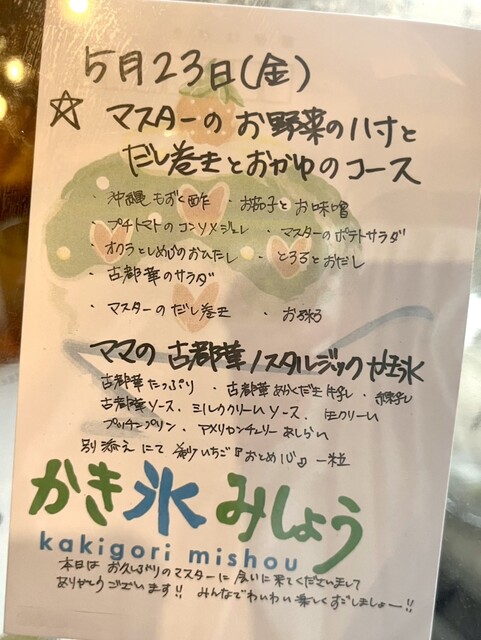 5月23日(金)
☆ マスターの お野菜の八寸と
だし巻玉とおかゆのコース
・沖縄もずく酢 ・お茄子とお味噌
・プチトマトのコンソメジュレ ・マスターのポテトサラダ
・オクラとしめじのおひたし ・とろろとおだし
・古都華のサラダ
・マスターのだし巻玉 ・お粥
ママの 古都華ノスタルジック 氷
古都華たっぷり ・古都華あらくだき
古都華ソース、ミルククリームソース、生クリーム
プッチンプリン、アメリカンチェリーあしらい
別添えにて 新いちご『おとめ心』一粒
かき氷みしょう
kakigori mishou
本日は お久しぶりのマスターに 会いに来てくださいまして
ありがとうございます!! みんなでわいわい楽しくすごしましょー!!